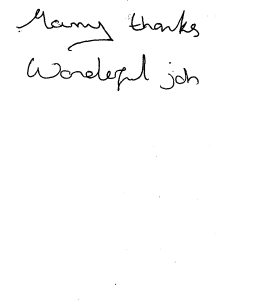 Many thanks
Wonderful job